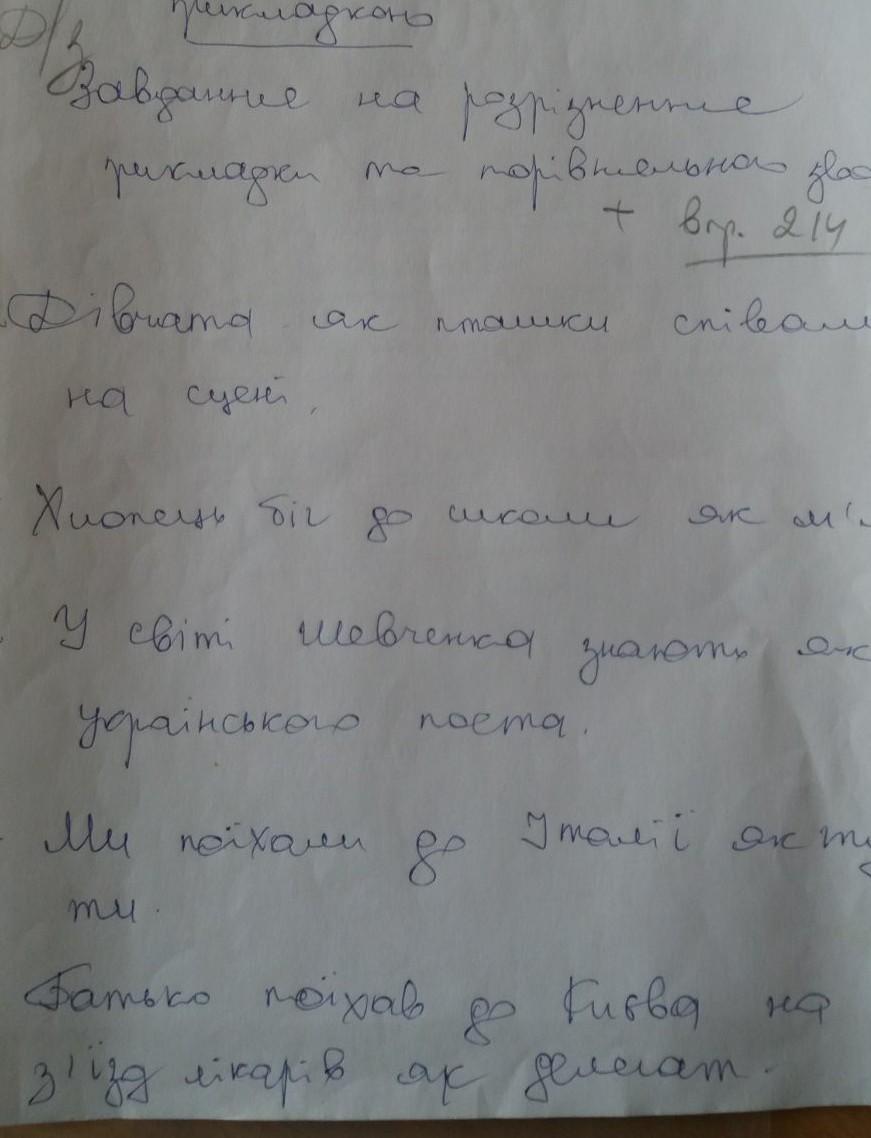 Д/з прикладкою
Завдання на розрізнення
прикладки та порівняльного
+ впр. 214
Дівчата як пташки співали
на сцені.
Хлопець біг до школи як м'
У світі Шевченка знають як
українського поета.
Ми поїхали до Італії як ту
ти.
Батько поїхав до Києва на
з'їзд лікарів як делегат.